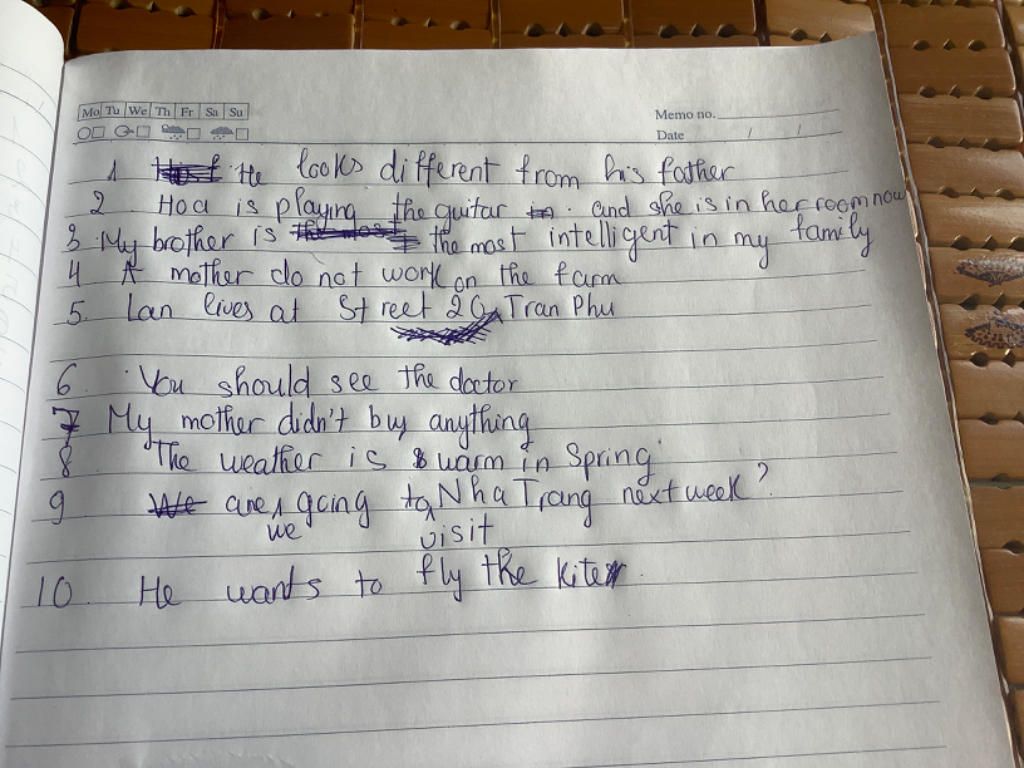 Mo Tu We Th Fr Sa Su
Memo no.
Date / /
1 He looks different from his father
2 Hoa is playing the guitar and she is in her room now
3 My brother is the most intelligent in my family
4 A mother do not work on the farm
5. Lan lives at Street 20 Tran Phu
6. You should see the doctor
7 My mother didn't buy anything
8 The weather is warm in Spring
9 We are going to Nha Trang next week?
we visit
10. He wants to fly the kite